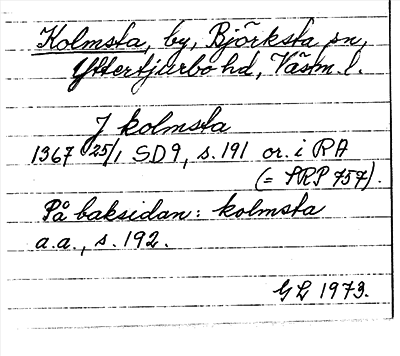 Kolmsta, by, Björksta sn,
Yttertjurbo hd, Västm. l.
J kolmsta
1367 25/1 SD9, s. 191 or. i RA
(= SRP 757).
På baksidan: kolmsta
a.a., s. 192.
GL 1973.